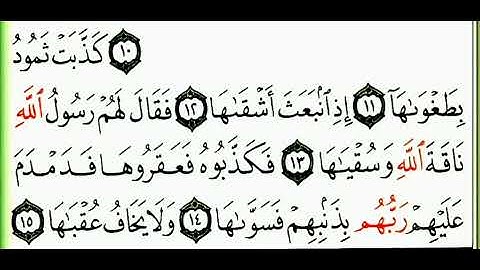 ١٠ كَذَّبَتْ ثَمُودُ
بِطَغْوَىٰهَآ ١١ إِذِ ٱنۢبَعَثَ أَشْقَىٰهَا ١٢ فَقَالَ لَهُمْ رَسُولُ ٱللَّهِ
نَاقَةَ ٱللَّهِ وَسُقْيَـٰهَا ١٣ فَكَذَّبُوهُ فَعَقَرُوهَا فَدَمْدَمَ
عَلَيْهِمْ رَبُّهُم بِذَنۢبِهِمْ فَسَوَّىٰهَا ١٤ وَلَا يَخَافُ عُقْبَـٰهَا ١٥